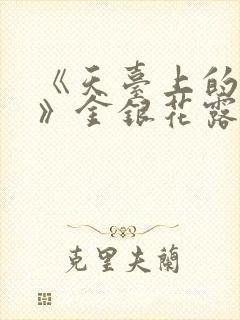 《天臺上的
》金銀花露
克里夫蘭